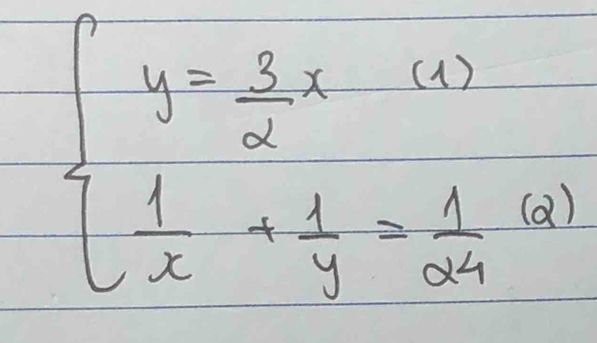 y = 3/2 x (1)
1/x + 1/y = 1/24 (2)